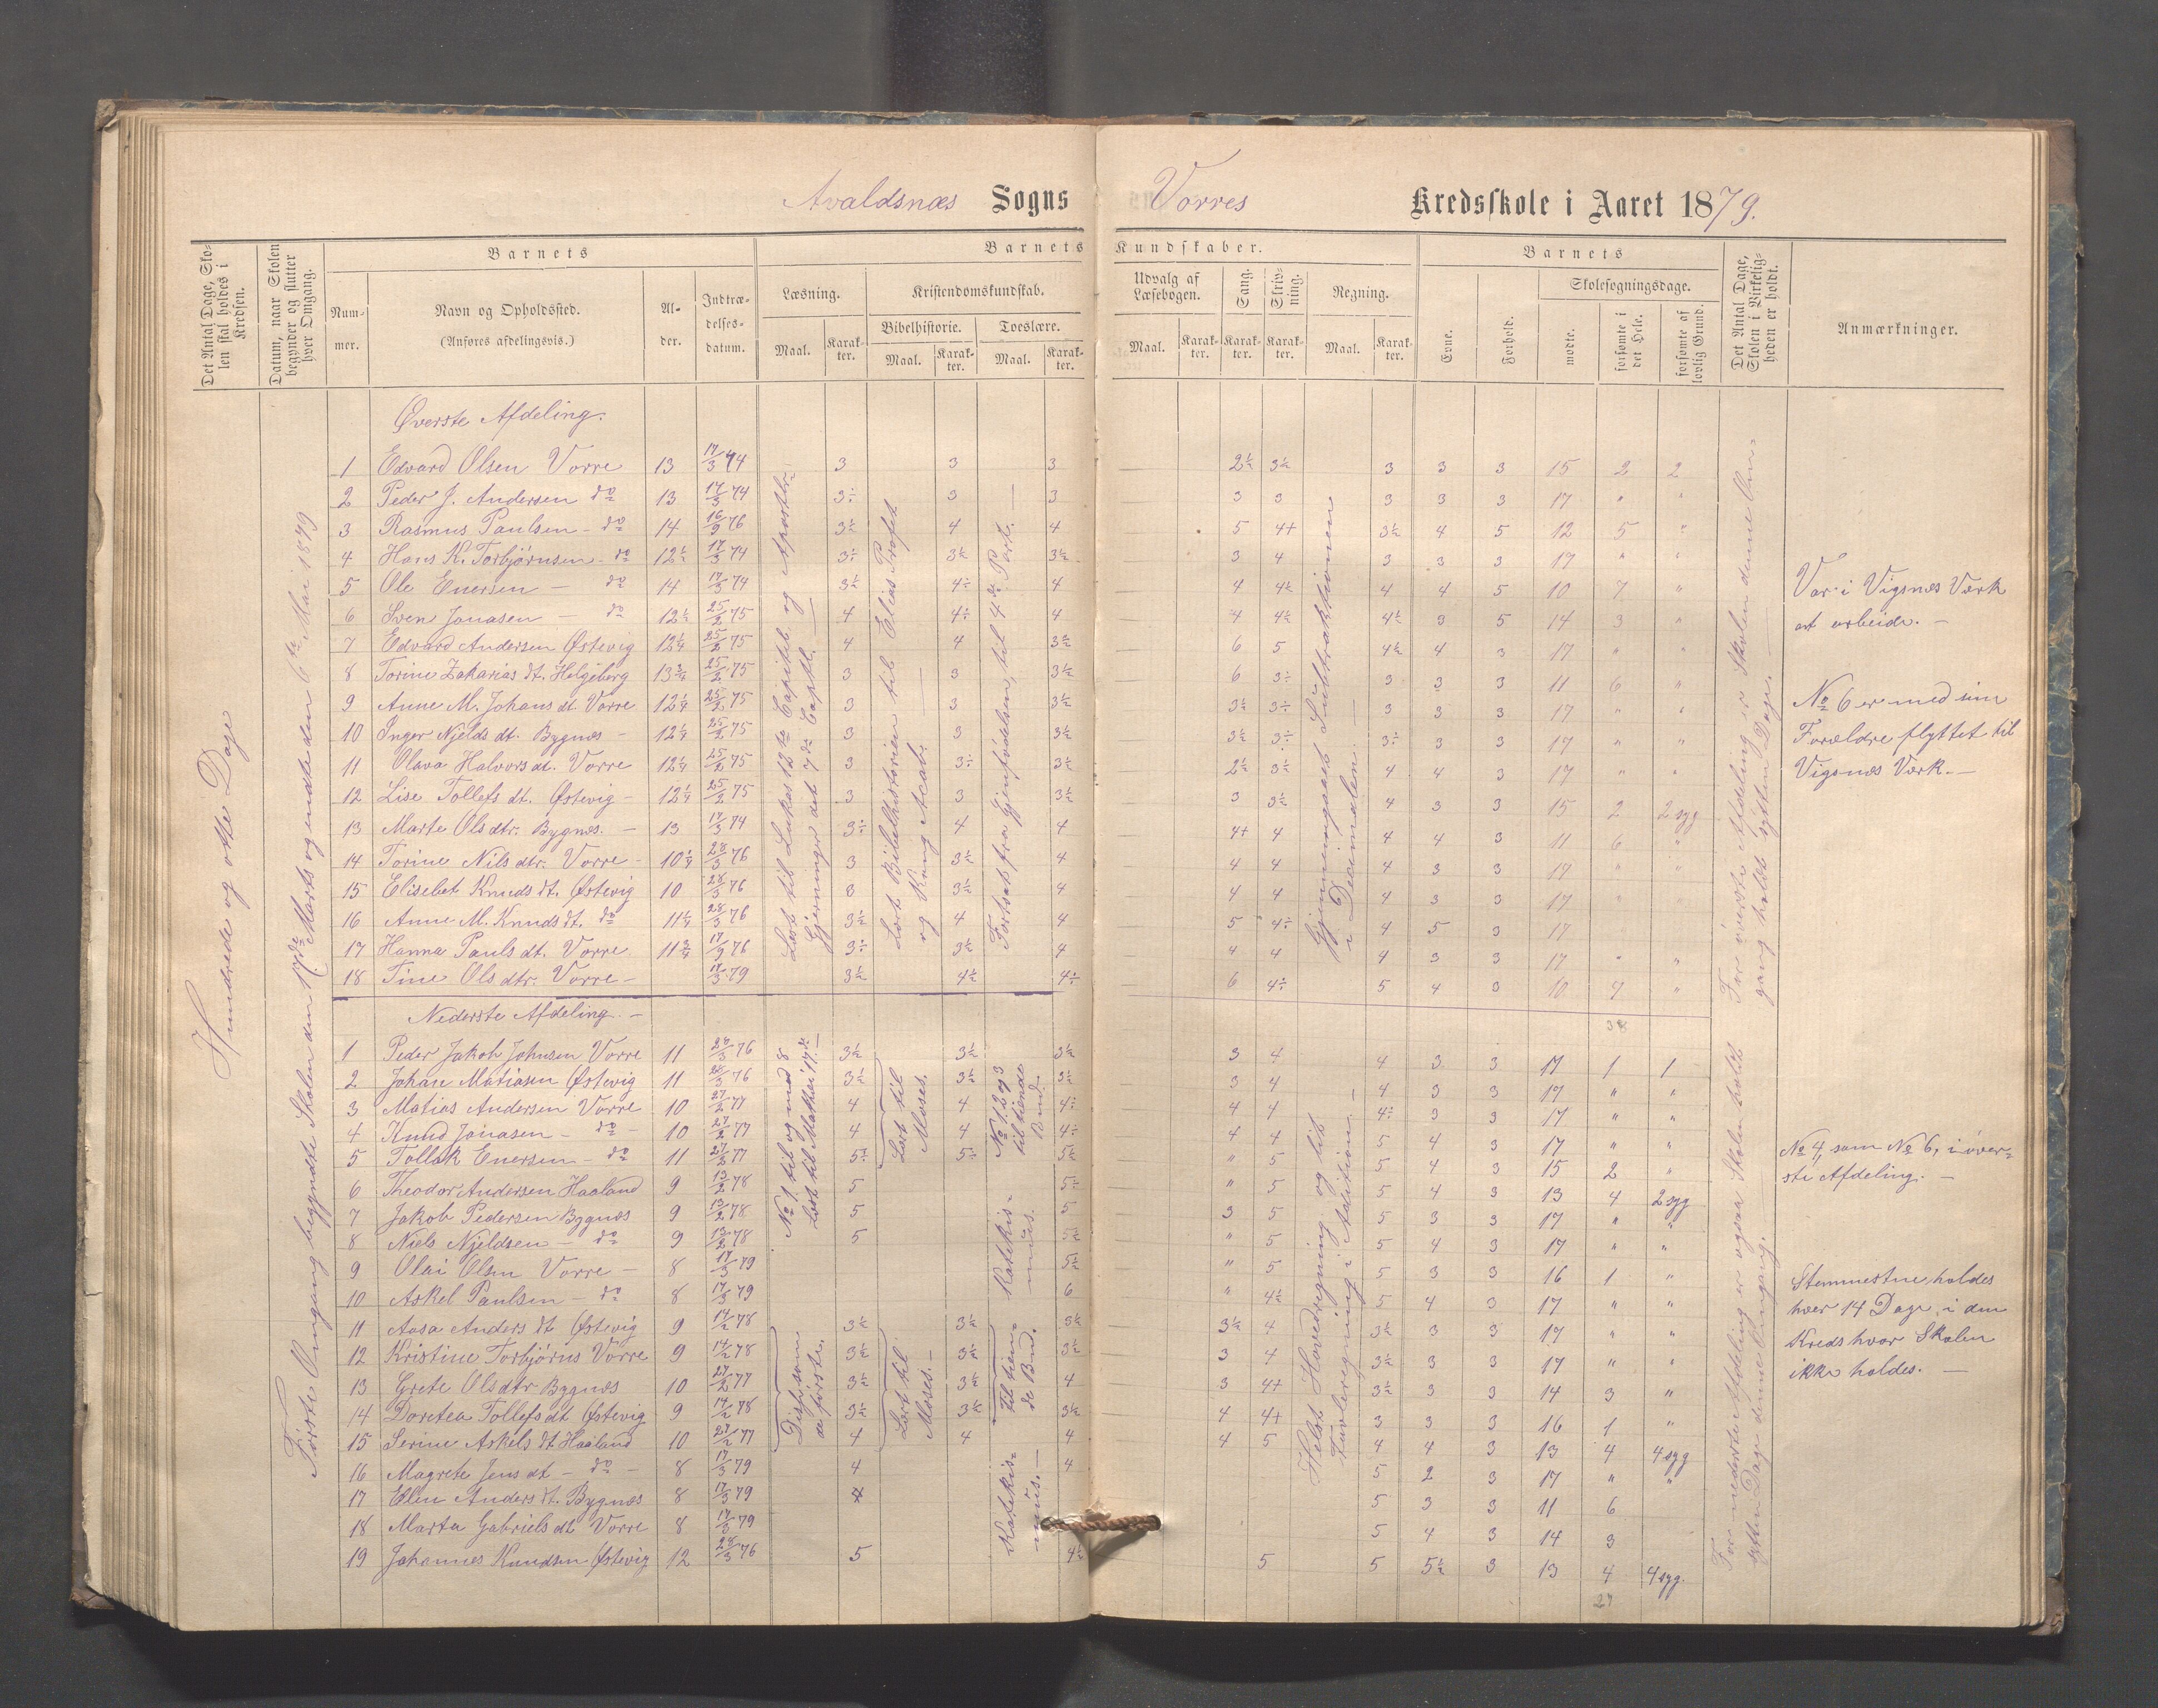 Avaldsnæs Sogns
Vorres Kredsskole i Aaret 1879.
Det Antal Dage, Skolen skal holdes i Kredsen.
Datum, naar Skolen begynder og slutter hver Omgang.
Barnets
Nummer.
Navn og Opholdssted.
(Anføres afdelingsvis.)
Alder.
Indtrædelsesdatum.
Barnets Kundskaber.
Læsning.
Maal.
Karakter.
Kristendomskundskab.
Bibelhistorie.
Maal.
Karakter.
Troeslære.
Maal.
Karakter.
Udvalg af Læsebogen.
Maal.
Karakter.
Sang.
Karakter.
Skrivning.
Karakter.
Regning.
Maal.
Karakter.
Barnets
Evne.
Forhold.
Skolesøgningsdage.
mødte.
forsømte i det Hele.
forsømte af lovlig Grund.
Det Antal Dage, Skolen i Virkeligheden er holdt.
Anmærkninger.
Hundrede og otte Dage
Første Omgang begyndte Skolen den 17de Marts og endte den 6te Mai 1879
Øverste Afdeling.
1 Edvard Olsen Vorre 13 17/3 74 3 3 3 2½ 3½ 3 3 3 15 2 2
2 Peder J. Andersen do 13 17/3 74 3÷ 3 3 3 3 3 3 3 17 " "
3 Rasmus Paulsen - do 14 16/9 76 3½ 4 4 5 4+ 3½ 4 5 12 5 "
4 Hans K. Torbjørnsen - do 12½ 17/3 74 3÷ 3½ 3½ 3 4 3 3 3 17 " "
5 Ole Enersen - do 14 17/3 74 3½ 4÷ 4 4 4½ 4 4 5 10 7 "
6 Sven Jonasen - do 12½ 25/2 75 4 4÷ 4 4 4½ 4½ 3 5 14 3 "
7 Edvard Andersen Østevig 12¼ 25/2 75 4 4 3½ 6 5 4½ 4 3 17 " "
8 Torine Zakarias dt. Helgeberg 13¾ 25/2 75 3 3 3½ 6 3÷ 3 3 3 11 6 "
9 Anne M. Johans dt. Vorre 12¼ 25/2 75 3 3 3½ 3½ 3÷ 3 3 3 17 " "
10 Inger Njelds dt. Bygnæs - 12¼ 25/2 75 3 3 3½ 3½ 3÷ 3÷ 3 3 17 " "
11 Olava Halvors dt. Vorre 12¼ 25/2 75 3 3÷ 3½ 2½ 3½ 4 4 3 17 " "
12 Lise Tollefs dt. Østevig - 12¼ 25/2 75 3 3 3½ 3 3½ 4 3 3 15 2 2 syg
13 Marte Ols dtr. Bygnæs. - 13 17/3 74 3÷ 4 4 4+ 4 4 4 3 11 6 "
14 Torine Nils dtr. Vorre - 10¼ 28/3 76 3 3½ 4 4 4 4 3 3 17 " "
15 Elisebet Knuds dt. Østevig 10 28/3 76 3 3½ 4 4 4 4 3 3 17 " "
16 Anne M. Knuds dt. do 11¼ 28/3 76 3½ 4 4 5 4÷ 4 5 3 17
17 Hanna Pauls dt. Vorre 11¾ 17/9 76 3÷ 3½ 4 4 4 4 3 3 17 " "
18 Tine Ols dtr. Vorre - 17/3 79 3½ 4½ 4÷ 6 4÷ 5 4 3 10 7 "
38
Læst til Lukas 12te Capitel og Apostlernes Gjerninger det 7de Captl.
Lært Bibelhistorien til Elias Profet og Kong Acab.
Fortsat fra Gjenfødelsen, til 4de Part.
Gjennemgaaet Subtraktionen i Decimalen
For øverste Afdeling er Skolen denne Omgang holdt sytten Dage.
Nederste Afdeling. -
1 Peder Jakob Johnsen Vorre 11 28/3 76 3½ 3½ 3½ 3 4 4 3 3 17 1 1
2 Johan Matiasen Østevig 11 28/3 76 3½ 3½ 3½ 3 4 4 3 3 17 " "
3 Matias Andersen Vorre 10 27/2 77 4 4 4÷ 4 4 4÷ 3 3 17 " "
4 Knud Jonasen - do - 10 27/2 77 4 4 4÷ 4 4 5 4 3 17 " "
5 Tollak Enersen - do 11 27/2 77 5÷ 5÷ 5½ " 5 5 4 3 15 2 "
6 Theodor Andersen Haaland 9 13/2 78 5 5½ " 5 5 4 3 13 4 2 syg
7 Jakob Pedersen Bygnæs 9 13/2 78 5 5 3 5 5 3 3 17 " "
8 Niels Njeldsen - do 9 13/2 78 5 5½ " 5 5 4 3 17 " "
9 Olai Olsen Vorre - 8 17/3 79 5½ " 5 5 3 3 16 1 "
10 Askel Paulsen - do 8 17/3 79 6 " 4½ 5 4 3 17 " "
11 Aasa Anders dt Østevig 9 14/2 78 3½ 3½ 3½ 3½ 4 3½ 3 3 17 " "
12 Kristine Torbjørns Vorre 9 14/2 78 3½ 3½ 3½ 3 4 3½ 3 3 17 " "
13 Grete Ols dtr Bygnæs 10 27/2 77 3½ 3½ 4 3 4+ 3½ 3 3 14 3 "
14 Dortea Tollefs dt Østevig 9 14/2 78 3½ 3½ 3½ 4 4+ 3 3 3 16 1 "
15 Serine Askels dt Haaland 10 27/2 77 4 4 4 4 5 4 4 3 13 4 4 syg
16 Magrete Jens dt - do - 8 17/3 79 4 4 5 2 3 17 " "
17 Elen Anders dt. Bygnæs 8 17/3 79 5 3 3 11 6
18 Marta Gabriels dt Vorre 8 17/3 79 5 4 3 14 3
19 Johannes Knudsen Østevig 12 28/3 76 5 4½ 5 5 5½ 3 13 4 4 syg.
27
No 1 til og med 8 læst til Mathæi 17de
Lært til Moses.
No 1, 2 og 3 til tiende Bud.
Katekismus.
Disse som de første.
Lært til Moses. -
til tiende Bud.
Katekismus. -
Helst Hovedregning og lit Tavleregning i Adition.
For nederste Afdeling er ogsaa Skolen holdt sytten Dage denne Omgang.
Var i Vigsnæs Værk
at arbeide. -
No 6 er med sine
Forældre flyttet til
Vigsnæs Værk. -
No 4, som No 6, i øver-
ste Afdeling. -
Stemmestue holdes
hver 14 Dage, i den
Kreds hvor Skolen
ikke holdes. -